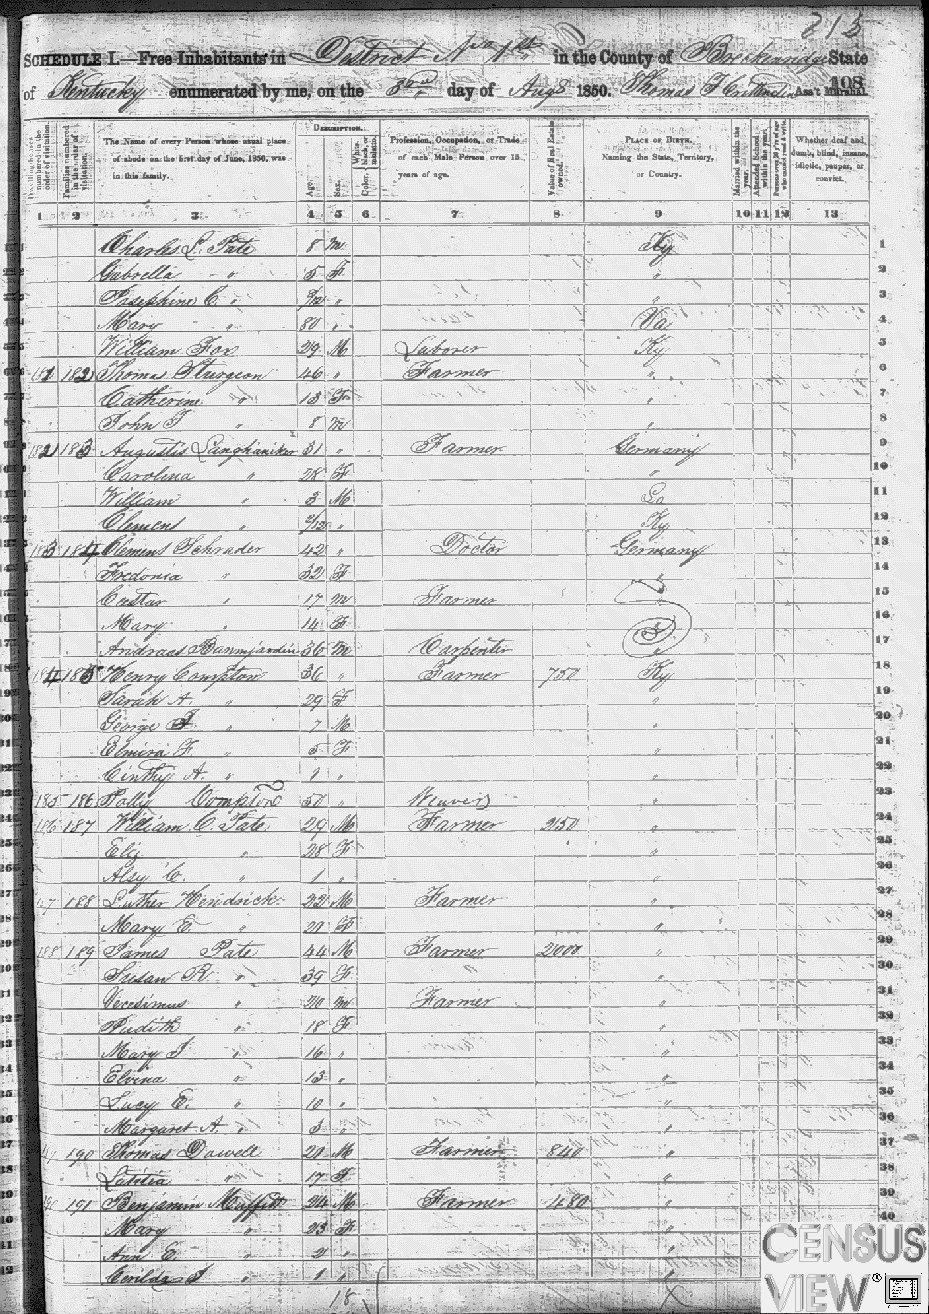 213
SCHEDULE I.—Free Inhabitants in District No 1st in the County of Breckenridge State
of Kentucky enumerated by me, on the 8th day of Augs 1850. Thomas J Ass't Marshal. 108
Dwelling-houses numbered in the order of visitation.
Families numbered in the order of visitation.
The Name of every Person whose usual place of abode on the first day of June, 1850, was in this family.
Description.
Age.
Sex.
Color, White, black, or mulatto.
Profession, Occupation, or Trade of each Male Person over 15 years of age.
Value of Real Estate owned.
Place of Birth, Naming the State, Territory, or Country.
Married within the year.
Attended School within the year.
Persons over 20 y'rs of age who cannot read & write.
Whether deaf and dumb, blind, insane, idiotic, pauper, or convict.
1 2 3 4 5 6 7 8 9 10 11 12 13
Charles L. Pate 8 m Ky 1
Gabrella " 5 F " 2
Josephine C. " /12 " " 3
Mary " 80 " Va 4
William Fox 29 M Laborer Ky 5
182 Thomas Sturgeon 46 " Farmer " 6
Catherine " 13 F " 7
John T " 8 m " 8
182 183 Augustis Langhaniker 31 " Farmer Germany 9
Carolina " 28 F " 10
William " 3 M La 11
Clemens " /12 " Ky 12
183 184 Clemens Schrader 42 " Doctor Germany 13
Fredonia " 32 F " 14
Custar " 17 m Farmer " 15
Mary " 14 F " 16
Andraas Baumjardin 36 m Carpenter " 17
184 185 Henry Compton 36 " Farmer 750 Ky 18
Sarah A. " 29 F " 19
George " 7 M " 20
Elmira F. " 5 F " 21
Cinthy A. " 1 " " 22
185 186 Polly Compton 50 " Weaver " 23
186 187 William C. Pate 29 M Farmer 250 " 24
Eliz " 28 F " 25
Alsy C. " 1 " " 26
188 Luther Hendrick 22 M Farmer " 27
Mary E. " 21 F " 28
188 189 James Pate 44 M Farmer 2000 " 29
Susan R. " 39 F " 30
Veredimus " 20 m Farmer " 31
Judith " 18 F " 32
Mary J " 16 " " 33
Elvina " 13 " " 34
Lucy E. " 10 " " 35
Margaret A. " 3 " " 36
190 Thomas Dowell 21 M Farmer 840 " 37
Latitia " 17 F " 38
191 Benjamin Muffett 24 M Farmer 480 " 39
Mary " 23 F " 40
Ann E. " 2 " "
Cerilda J " 1 " "
18
CENSUS
VIEW®